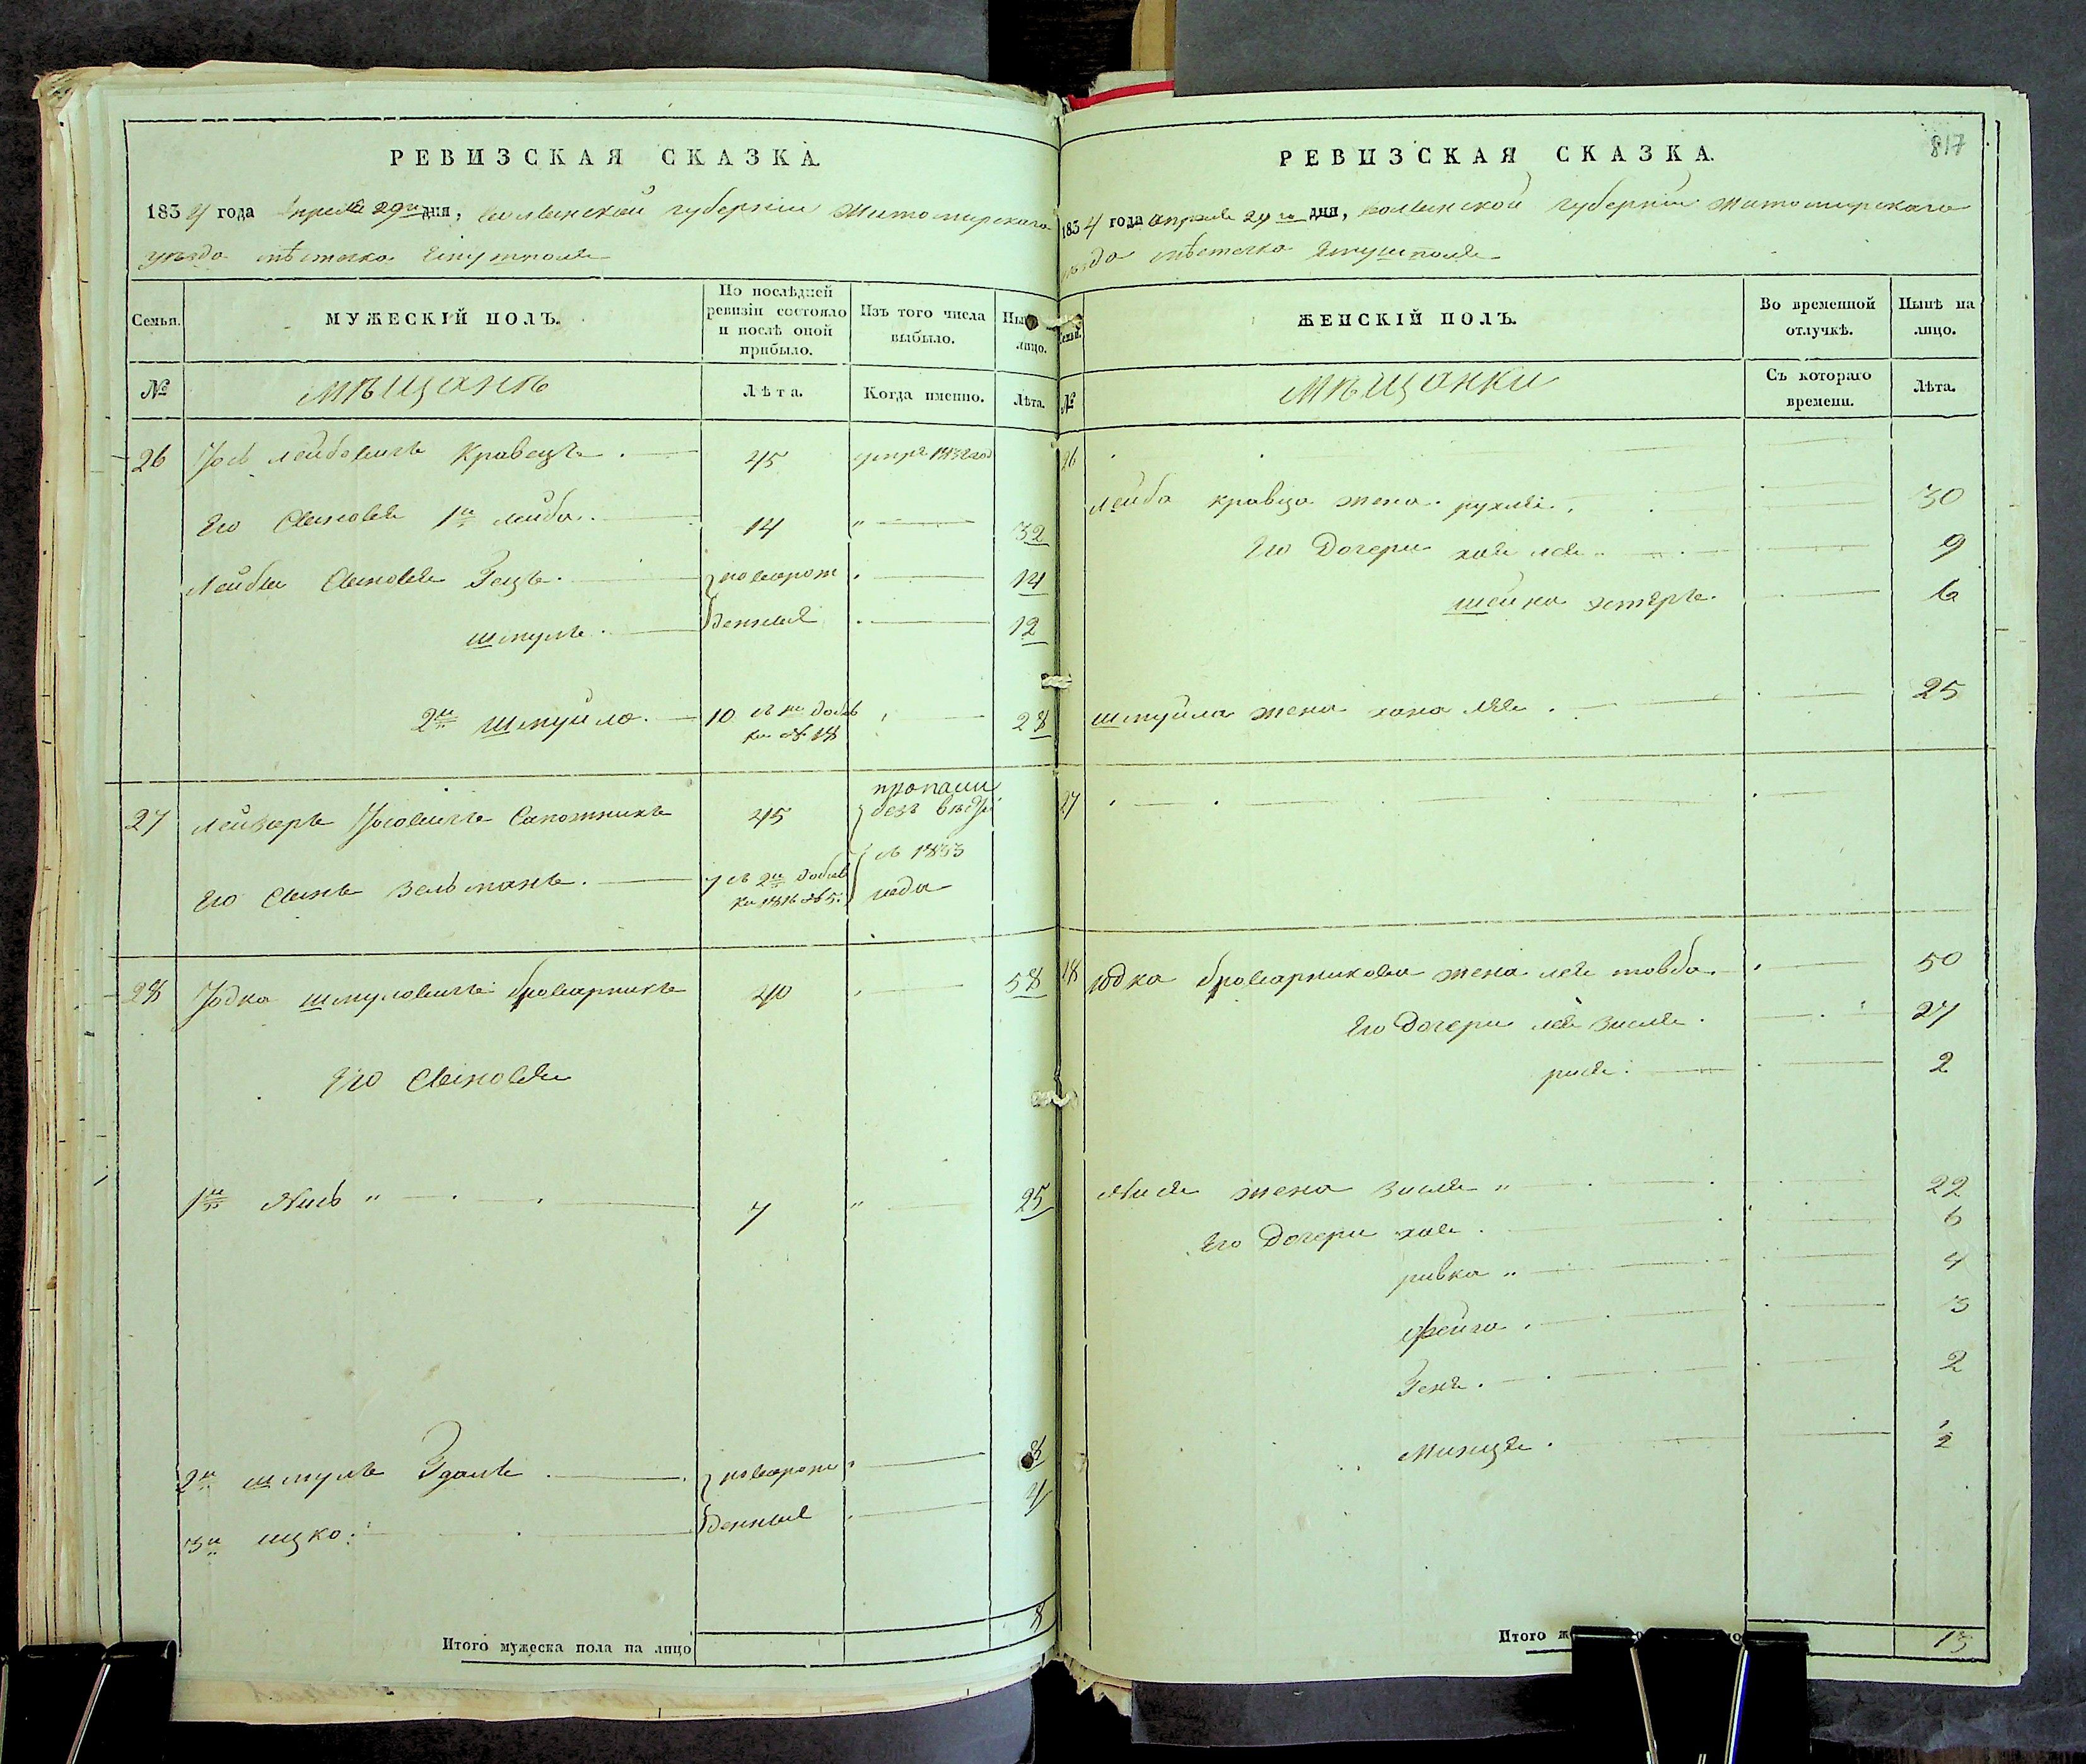 РЕВИЗСКАЯ СКАЗКА.
1834 года Апреля 29го дня, Волынской губерніи Житомирскаго
уезда мѣстечка
Семьи. МУЖЕСКІЙ ПОЛЪ. По послѣдней ревизіи состояло и послѣ оной прибыло. Изъ того числа выбыло. лицо.
№ Мѣщанъ Лѣта. Когда именно. Лѣта.
26 Йось Лейбовичъ Кравецъ 45 умре 1832 год
Его Сыновья 1й Лейба 14 " 32
Лейбы Сыновья новорож 14
Шмуль денные 12
2й Шмуйло 10 28
27 Лейзеръ Йосовичъ Сапожникъ 45 пропали безъ
Его Сынъ Зельманъ 7 съ 2й добав ки 1816 №5. съ 1833 года
28 Йодка Шмуловичъ броварникъ 40 58
Его Сыновья
1й 7 " 25
2й Шмуль новорож 8
3й Ицко денные 4
Итого мужеска пола на лицо 8
817
РЕВИЗСКАЯ СКАЗКА.
1834 года Апреля 29го дня, Волынской губерніи Житомирскаго
мѣстечка
Семьи. ЖЕНСКІЙ ПОЛЪ. Во временной отлучкѣ. Нынѣ на лицо.
№ Мѣщанки Съ котораго времени. Лѣта.
26
Лейба кравца жена рухля 30
Его Дочери хая лея 9
шейна эстеръ 6
Шмуйла жена хана лея 25
27
28 Йодка броварникова жена лея товба 50
Его Дочери лея 27
рися 2
жена 22
Его Дочери хая 6
ривка " 4
фейга 3
2
2
Итого 13